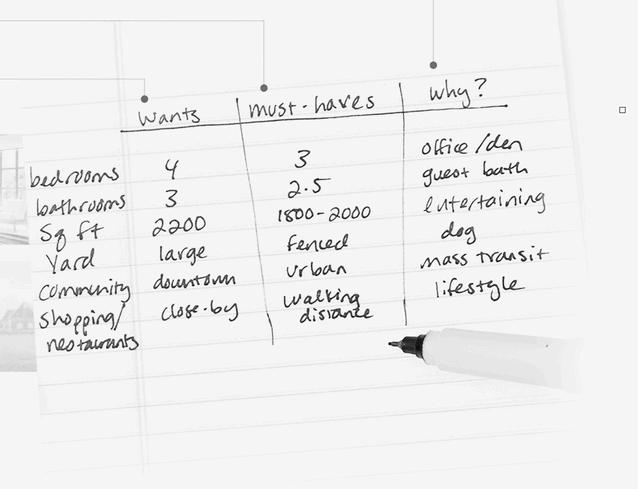 wants must-haves why?
bedrooms 4 3 office/den
bathrooms 3 2.5 guest bath
Sq ft 2200 1800-2000 entertaining
Yard large fenced dog
Community downtown urban mass transit
Shopping/ close-by walking lifestyle
restaurants distance